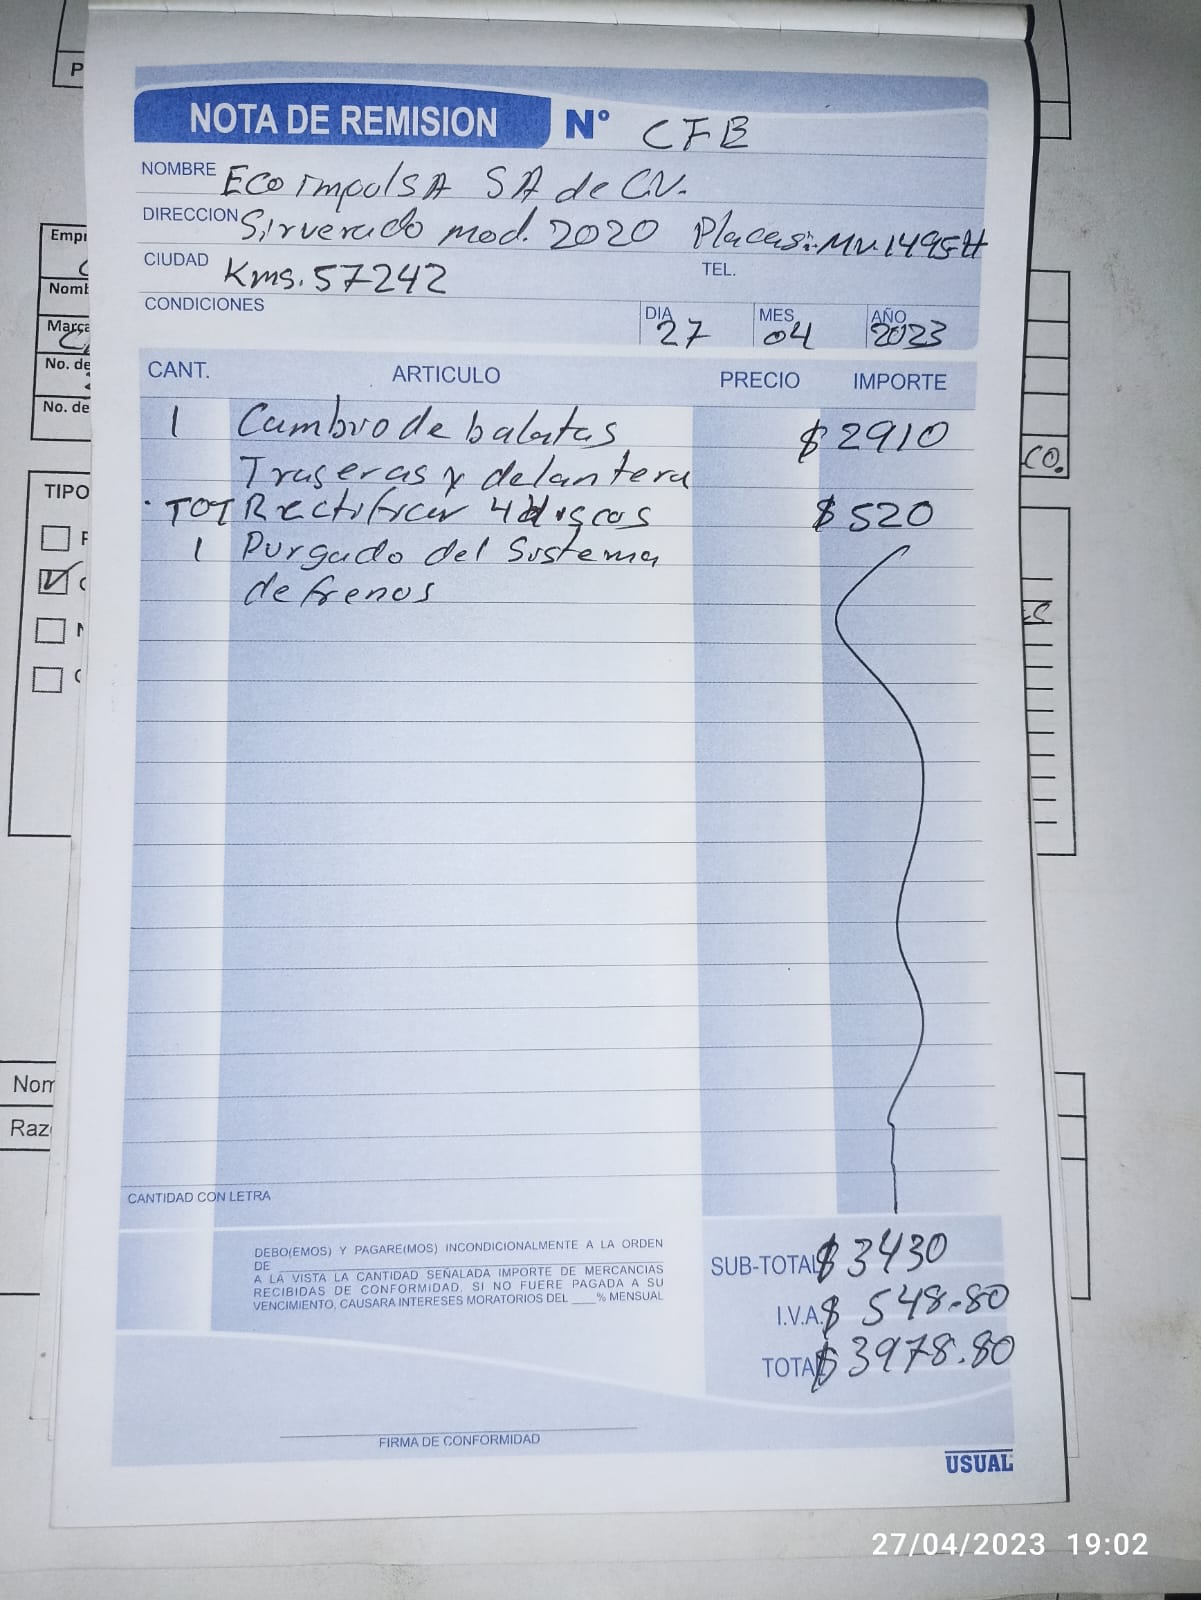 P
NOTA DE REMISION Nº CFB
NOMBRE Eco impulSA SA de CV.
DIRECCION Sirverado mod. 2020 Placas: MV.1495H
CIUDAD Kms. 57242 TEL.
CONDICIONES
DIA 27 MES 04 AÑO 2023
CANT. ARTICULO PRECIO IMPORTE
1 Cambio de balatas $ 2910
Traseras y delantera
TOT Rectificar 4 discos $ 520
1 Purgado del Sistema
de frenos
CANTIDAD CON LETRA
DEBO(EMOS) Y PAGARE(MOS) INCONDICIONALMENTE A LA ORDEN
DE
A LA VISTA LA CANTIDAD SEÑALADA IMPORTE DE MERCANCIAS
RECIBIDAS DE CONFORMIDAD, SI NO FUERE PAGADA A SU
VENCIMIENTO, CAUSARA INTERESES MORATORIOS DEL ____% MENSUAL
SUB-TOTAL $ 3430
I.V.A. $ 548.80
TOTAL $ 3978.80
FIRMA DE CONFORMIDAD
USUAL
Empr
Nomb
Marca
No. de
No. de
TIPO
CO.
Nom
Raz
27/04/2023 19:02